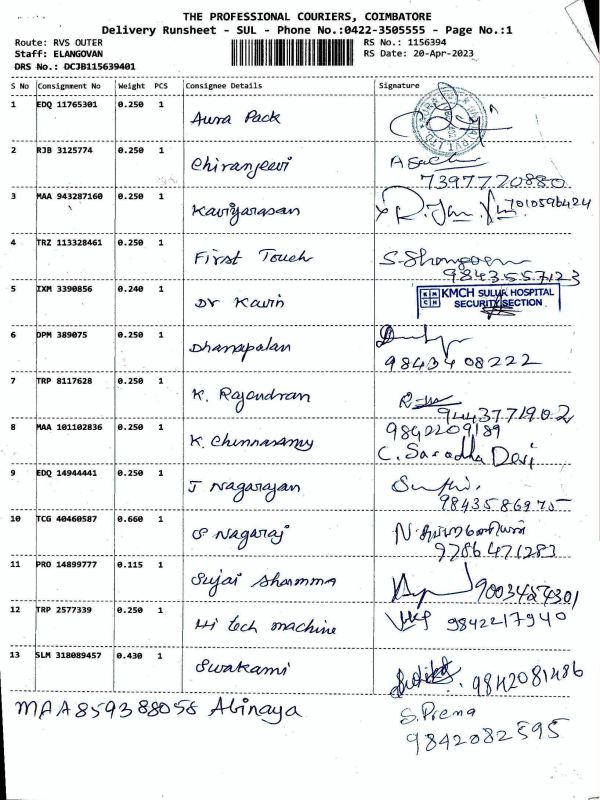 THE PROFESSIONAL COURIERS, COIMBATORE
Delivery Runsheet - SUL - Phone No.:0422-3505555 - Page No.:1
Route: RVS OUTER
RS No.: 1156394
Staff: ELANGOVAN
RS Date: 20-Apr-2023
DRS No.: DCJB115639401
S No Consignment No Weight PCS Consignee Details Signature
1 EDQ 11765301 0.250 1 Aura Pack
2 RJB 3125774 0.250 1 Chiranjeevi
7397720880
3 MAA 943287160 0.250 1 Kaviyarasan 7010596424
4 TRZ 113328461 0.250 1 First Touch
9843557123
5 IXM 3390856 0.240 1 Dr Kavin KMCH SULUR HOSPITAL
SECURITY SECTION
6 DPM 389075 0.250 1 Dhanapalan
9843408222
7 TRP 8117628 0.250 1 K. Rajendran
9443771902
8 MAA 101102836 0.250 1 K. Chinnasamy 9842209189
C. Saradha Devi
9 EDQ 14944441 0.250 1 J Nagarajan
10 TCG 40460587 0.660 1 S Nagaraj
9786471283
11 PRO 14899777 0.115 1 Sujai Sharmma
12 TRP 2577339 0.250 1 Hi tech machine 9842217940
13 SLM 318089457 0.430 1 Swakami
9842081486
MAA859388058 Abinaya S. Prema
9842082595